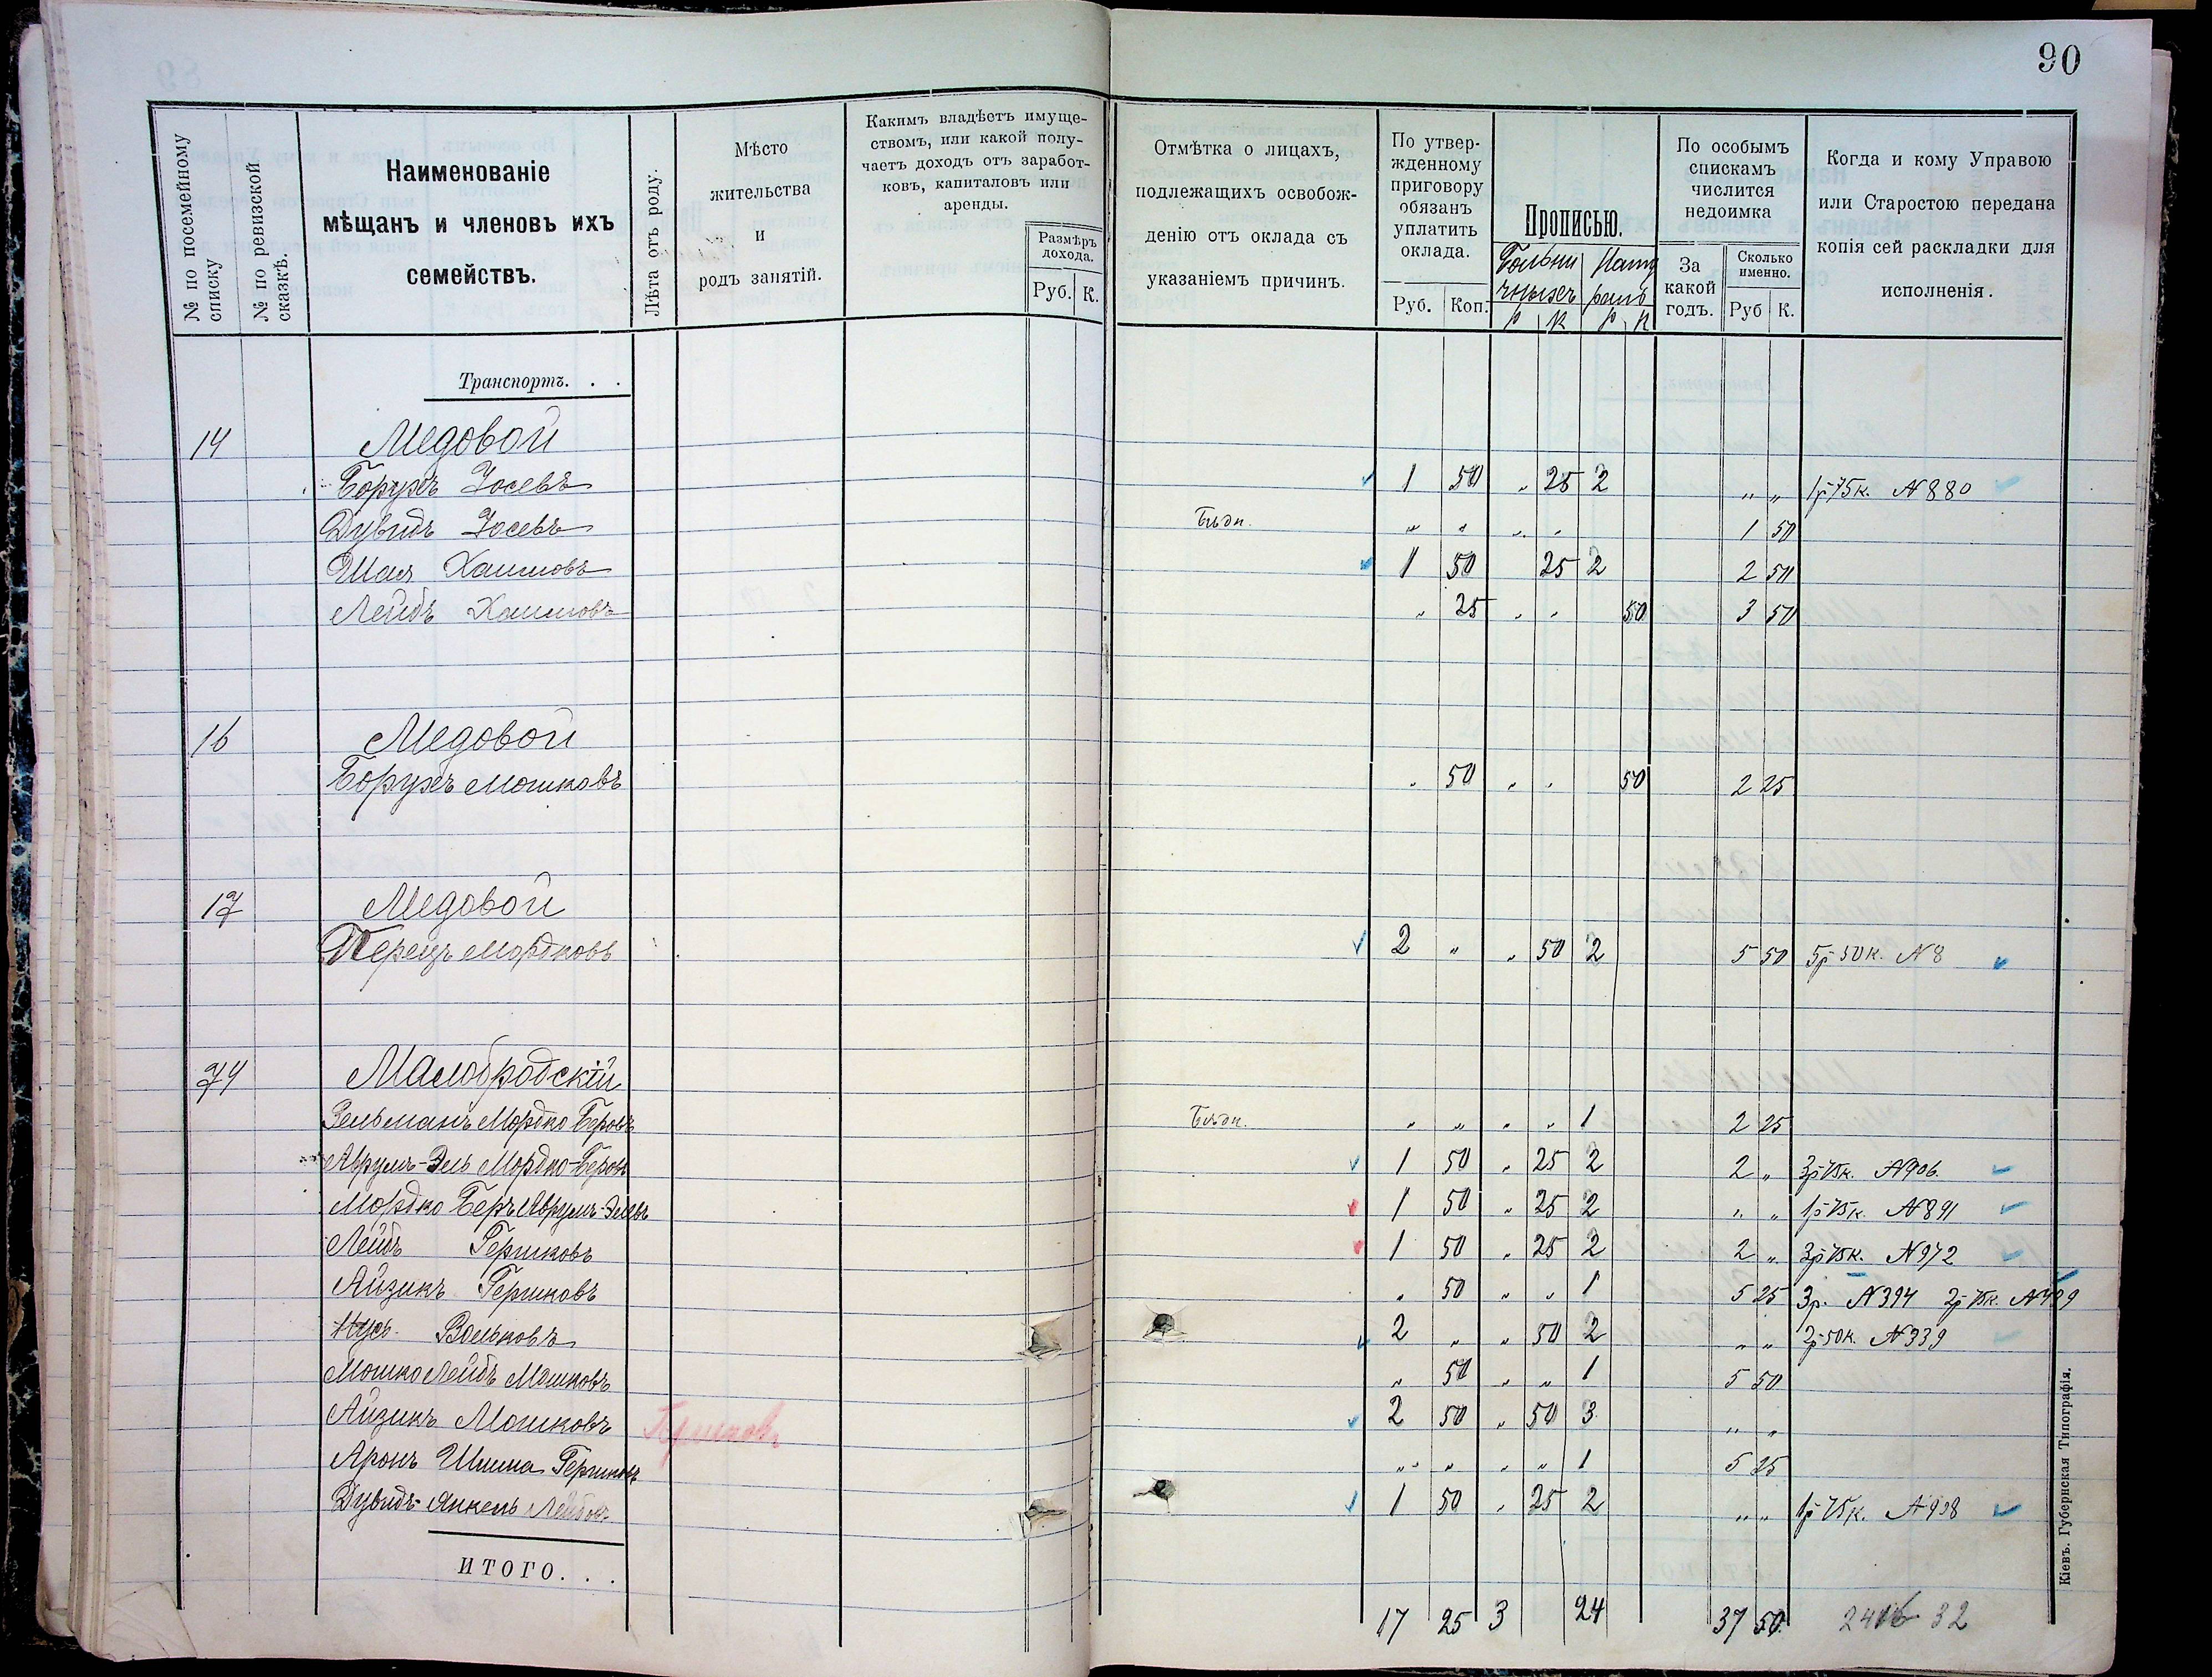 90
№ по посемейному списку
№ по ревизской сказкѣ.
Наименованіе
мѣщанъ и членовъ ихъ
семействъ.
Лѣта отъ роду.
Мѣсто
жительства
и
родъ занятій.
Какимъ владѣетъ имуще-
ствомъ, или какой полу-
чаетъ доходъ отъ заработ-
ковъ, капиталовъ или
аренды.
Размѣръ
дохода.
Руб. К.
Отмѣтка о лицахъ,
подлежащихъ освобож-
денію отъ оклада съ
указаніемъ причинъ.
По утвер-
жденному
приговору
обязанъ
уплатить
оклада.
Руб. Коп.
Прописью.
Больни
чныхъ
р к р к
По особымъ
спискамъ
числится
недоимка
За
какой
годъ.
Сколько
именно.
Руб К.
Когда и кому Управою
или Старостою передана
копія сей раскладки для
исполненія.
Транспортъ. . .
14 Медовой
Борухъ Іосевъ 1 50 „ 25 2 „ „ 1р 75к. №880
Дувидъ Іосевъ Бѣдн. „ „ „ „ 1 50
Шая Хаимовъ 1 50 25 2 2 50
Лейбъ Хаимовъ „ 25 „ „ 50 3 50
16 Медовой
Борухъ Мошковъ „ 50 „ „ 50 2 25
17 Медовой
Перецъ Мордковъ 2 „ „ 50 2 5 50 5р 50к. №8
74 Малобродскій
Зельманъ Мордко Беровъ Бѣдн. „ „ „ „ 1 2 25
Аврумъ-Эль Мордко-Беровъ 1 50 „ 25 2 2 „ 3р 75к. №906.
Мордко Беръ Аврумъ-Элевъ 1 50 „ 25 2 „ „ 1р 75к. №891
Лейбъ Гершковъ 1 50 „ 25 2 2 „ 3р 75к. №972
Айзикъ Гершковъ „ 50 „ „ 1 5 25 3р. №394 2р 75к.
Нусь Вольковъ 2 „ „ 50 2 „ „ 2р 50к. №339
Мошко Лейбъ Мошковъ „ 50 „ „ 1 5 50
Айзикъ Мошковъ Гершковъ 2 50 „ 50 3 „ „
Аронъ Шлима Гершковъ „ „ „ „ 1 5 25
Дувидъ-Янкель Лейбовъ 1 50 „ 25 2 „ „ 1р 75к. №938
ИТОГО. . .
17 25 3 24 37 50 32
Кіевъ. Губернская Типографія.